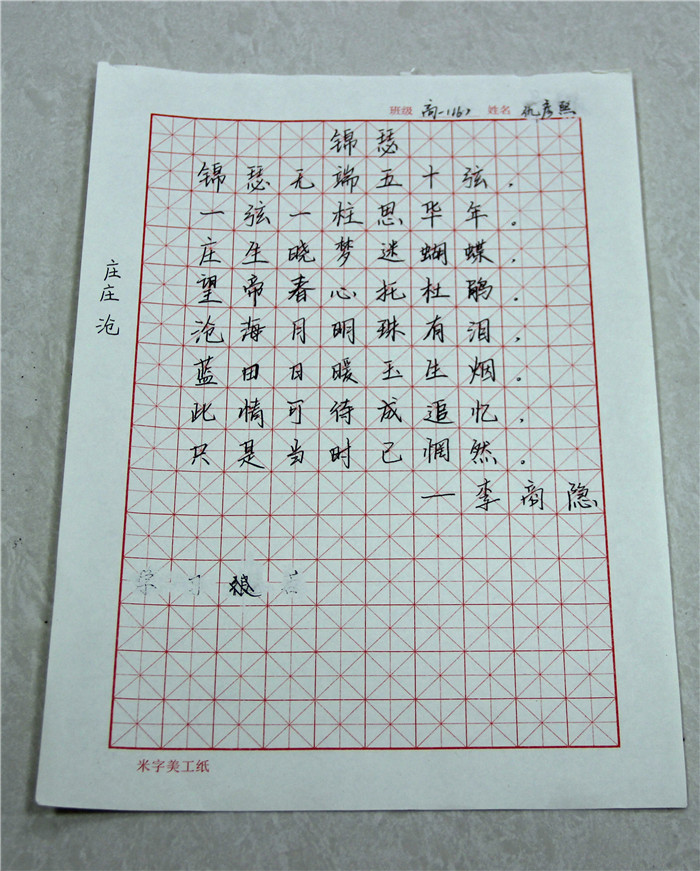 班级 高一(16) 姓名 仇彦熙
锦瑟
锦瑟无端五十弦,
一弦一柱思华年。
庄生晓梦迷蝴蝶,
望帝春心托杜鹃.
沧海月明珠有泪,
蓝田日暖玉生烟。
此情可待成追忆,
只是当时已惘然。
—李商隐
庄
庄
沧
米字美工纸